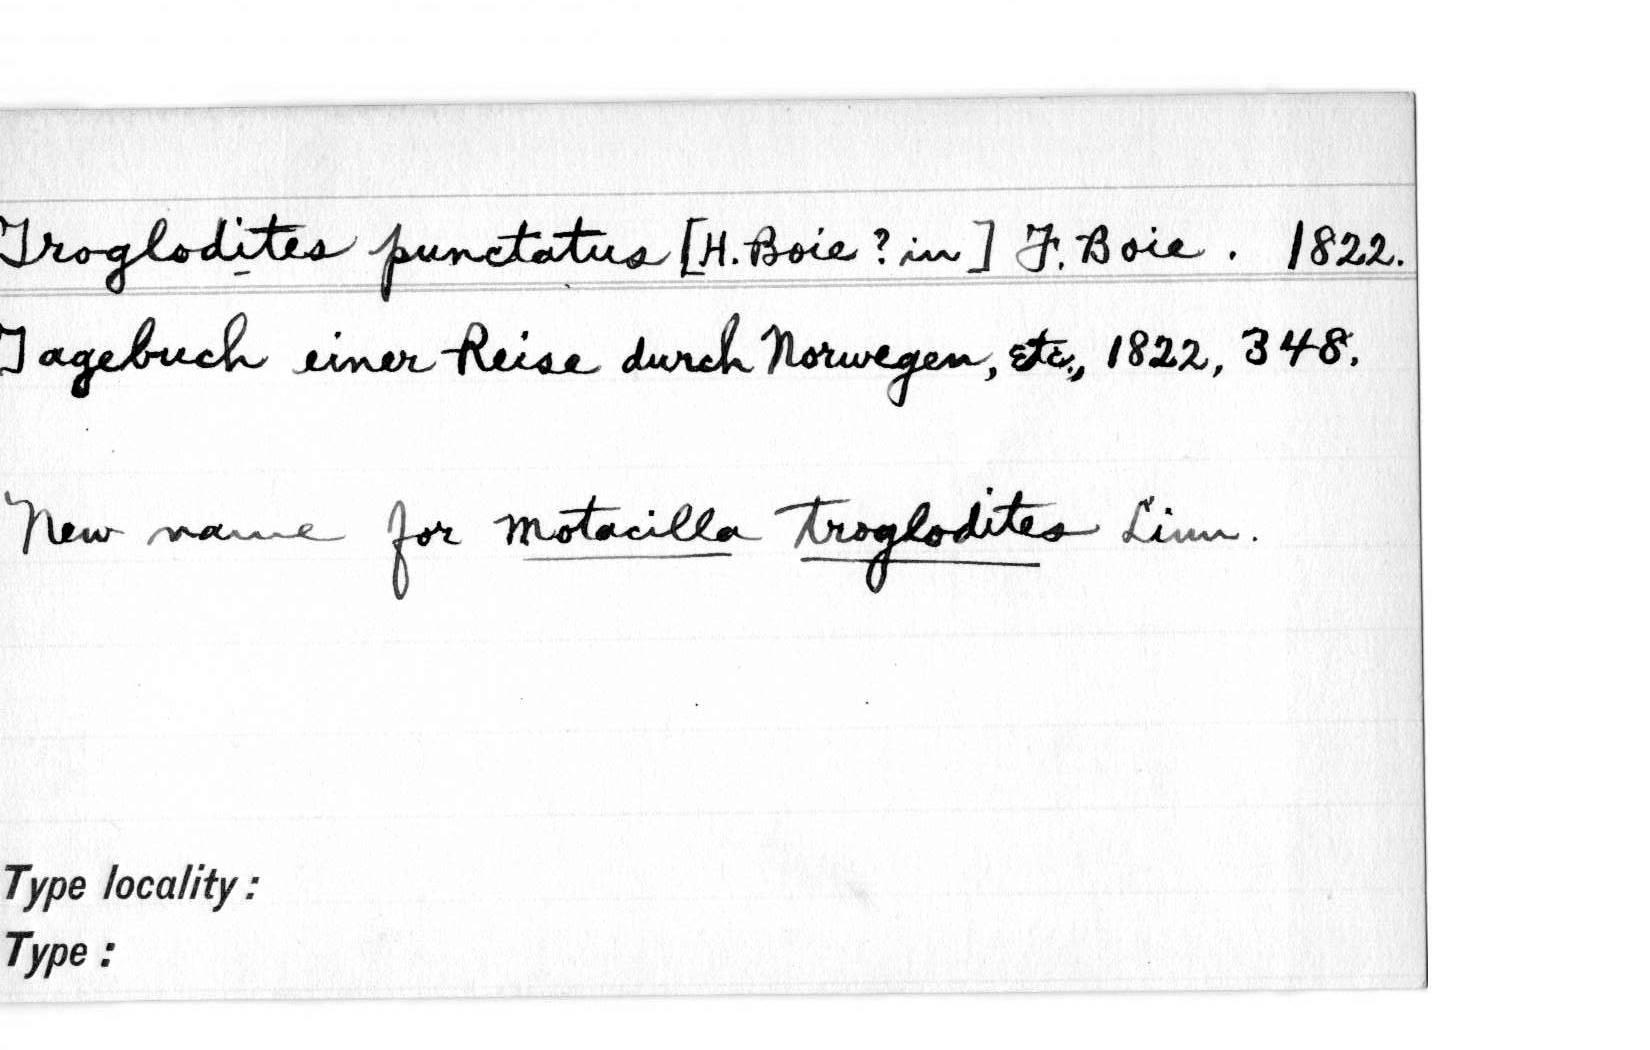 Troglodites punctatus [H. Boie ? in] F. Boie. 1822.
Tagebuch einer Reise durch Norwegen, etc., 1822, 348.
New name for Motacilla troglodites Linn.
Type locality:
Type: